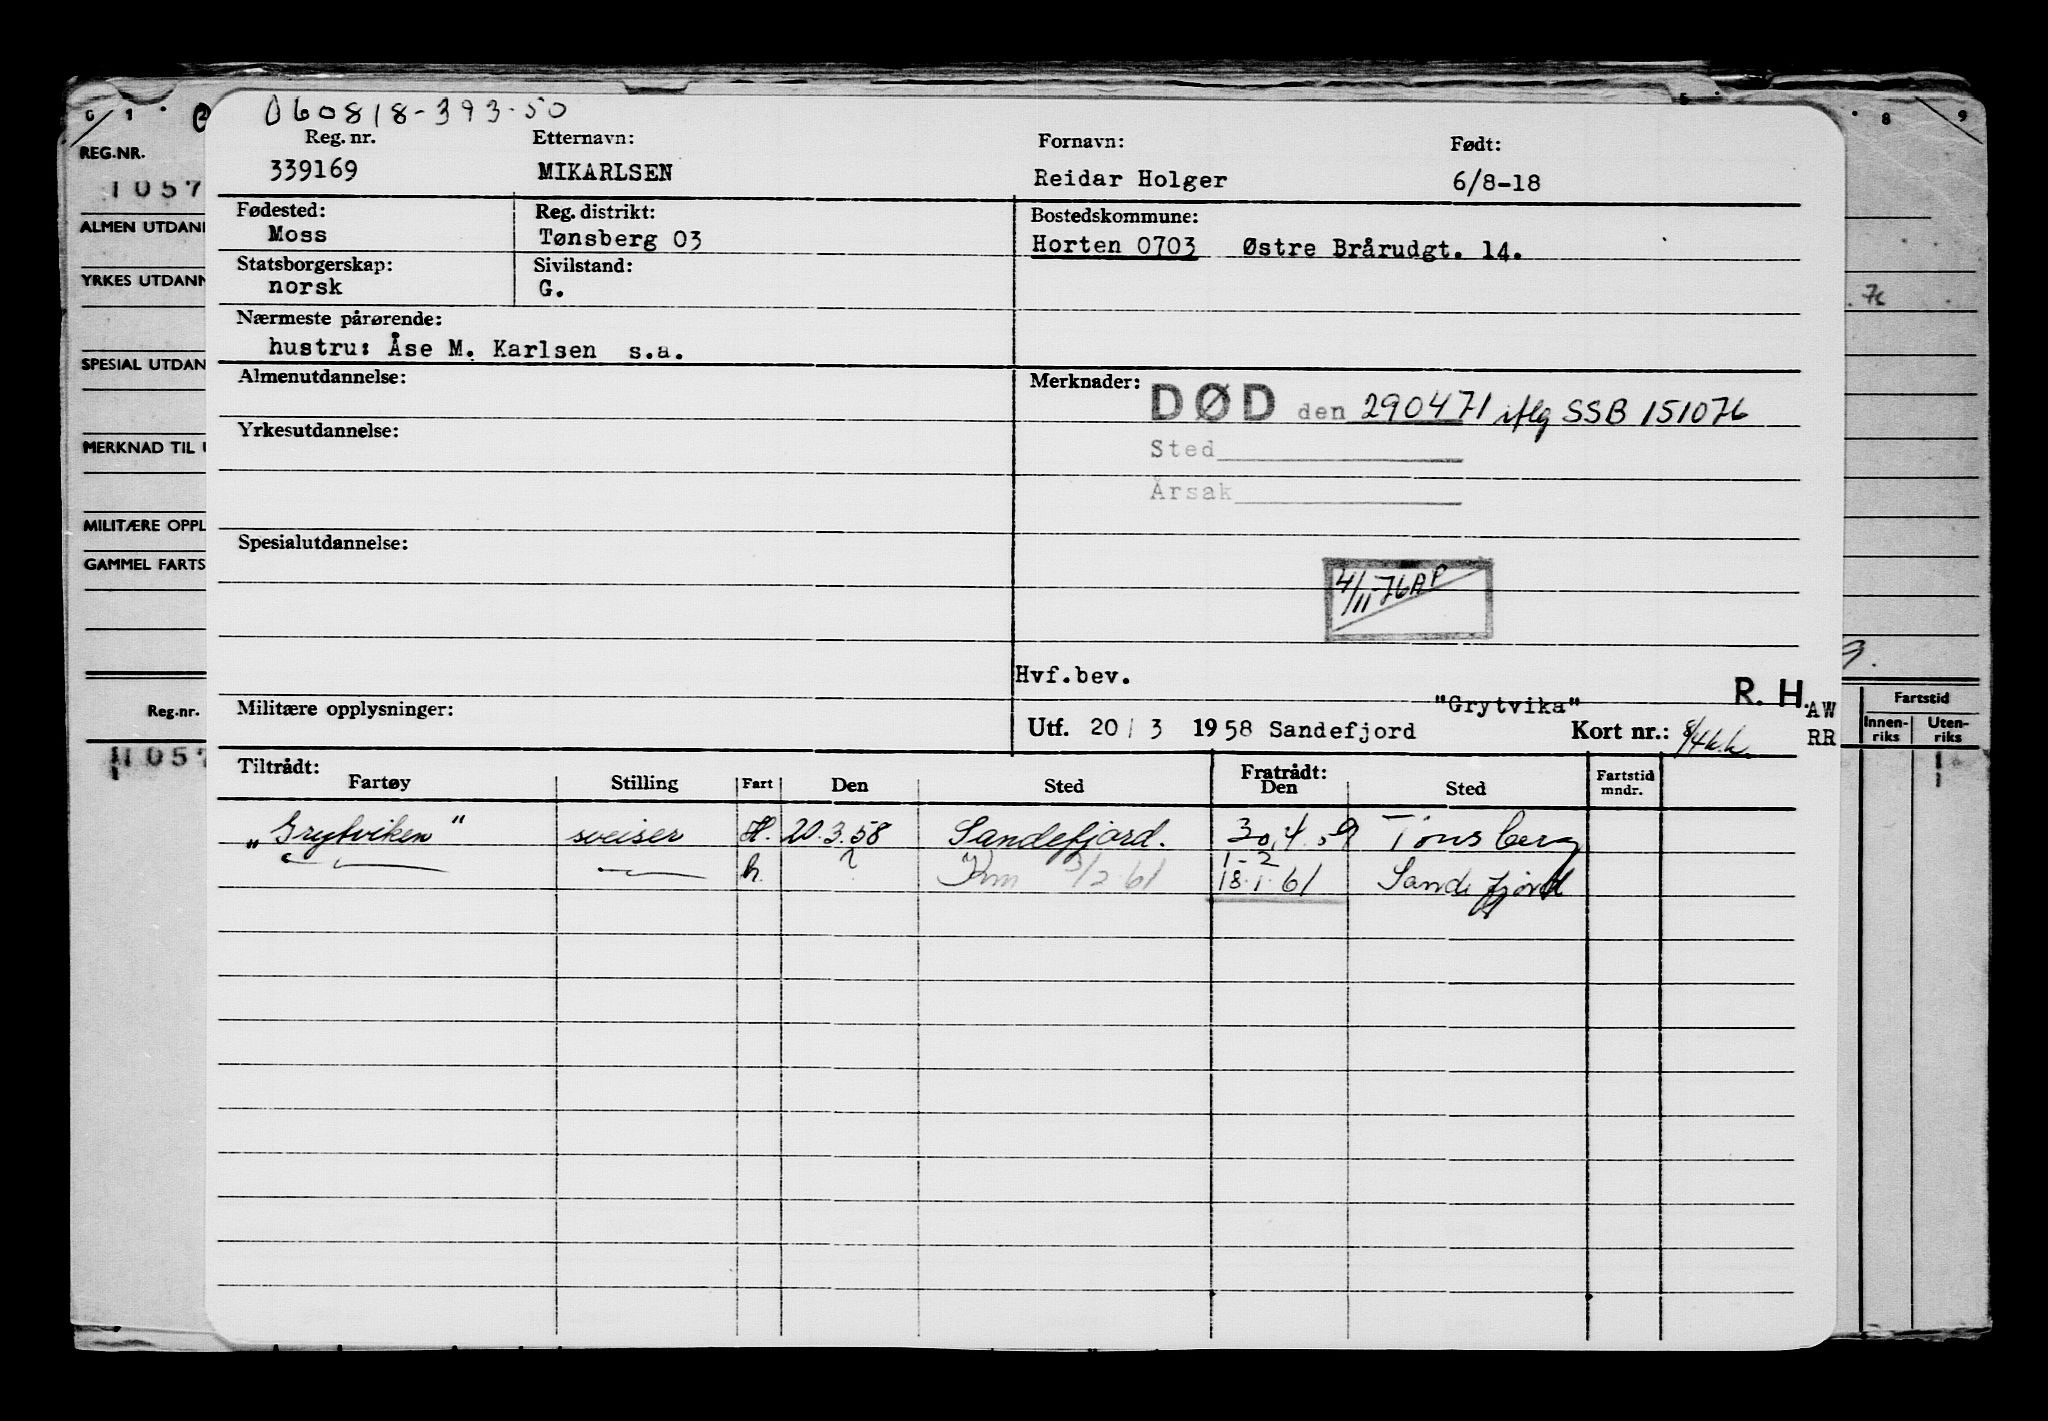 060818-393-50
Reg. nr. Etternavn: Fornavn: Født:
339169 MIKARLSEN Reidar Holger 6/8-18
Fødested: Reg. distrikt: Bostedskommune:
Moss Tønsberg 03 Horten 0703 Østre Brårudgt. 14.
Statsborgerskap: Sivilstand:
norsk G.
Nærmeste pårørende:
hustru: Åse M. Karlsen s.a.
Almenutdannelse: Merknader:
DØD den 290471 iflg SSB 151076
Yrkesutdannelse:
Sted
Årsak
Spesialutdannelse:
4/11-76 AP
Hvf.bev.
Militære opplysninger: "Grytvika" R. H. AW
Utf. 20/3 1958 Sandefjord Kort nr.: RR
Tiltrådt: Fratrådt:
Fartøy Stilling Fart Den Sted Den Sted Fartstid mndr.
"Grytviken" sveiser H. 20.3.58 Sandefjord. 30.4.59 Tønsberg
1-2
h. ? 3/2-61 18.1.61 Sandefjord
G 1 2 5 8 9
REG.NR.
1057
ALMEN UTDAN
YRKES UTDANN
7c
SPESIAL UTDAN
MERKNAD TIL U
MILITÆRE OPPL
GAMMEL FARTS
Reg.nr. Fartstid
Innen-riks Uten-riks
1057